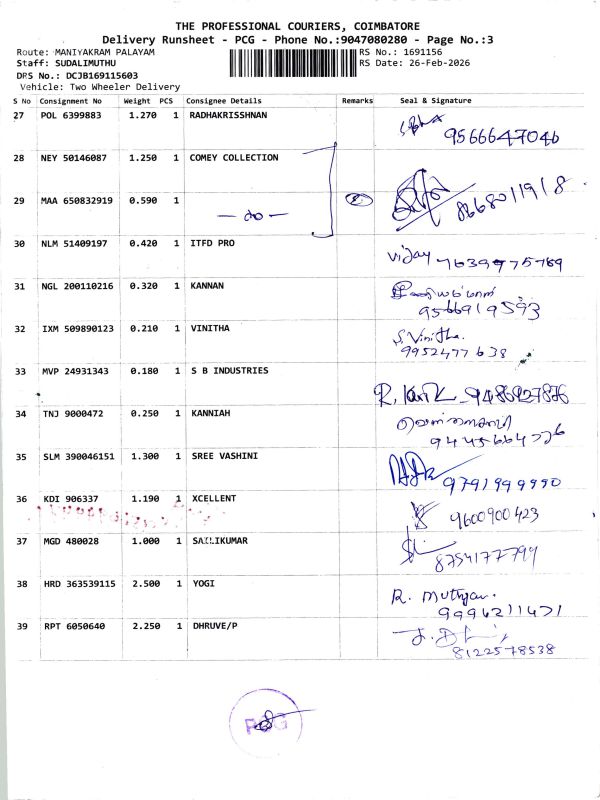 THE PROFESSIONAL COURIERS, COIMBATORE
Delivery Runsheet - PCG - Phone No.:9047080280 - Page No.:3
Route: MANIYAKRAM PALAYAM RS No.: 1691156
Staff: SUDALIMUTHU RS Date: 26-Feb-2026
DRS No.: DCJB169115603
Vehicle: Two Wheeler Delivery
S No Consignment No Weight PCS Consignee Details Remarks Seal & Signature
27 POL 6399883 1.270 1 RADHAKRISSHNAN
9566647046
28 NEY 50146087 1.250 1 COMEY COLLECTION
29 MAA 650832919 0.590 1 8668011918
— do —
30 NLM 51409197 0.420 1 ITFD PRO
Vijay 7639775769
31 NGL 200110216 0.320 1 KANNAN
9566919593
32 IXM 509890123 0.210 1 VINITHA
S. Vinitha.
9952477638
33 MVP 24931343 0.180 1 S B INDUSTRIES
9486927876
34 TNJ 9000472 0.250 1 KANNIAH
9445664726
35 SLM 390046151 1.300 1 SREE VASHINI
9791999990
36 KDI 906337 1.190 1 XCELLENT
9600900423
37 MGD 480028 1.000 1 SAILIKUMAR
8754177794
38 HRD 363539115 2.500 1 YOGI
R. Muthyau.
9994211471
39 RPT 6050640 2.250 1 DHRUVE/P
8122578538
PCG